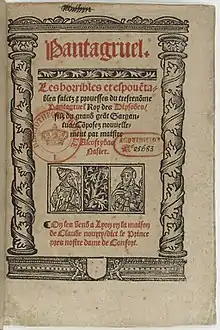 Pantagruel.
Les horribles et espouẽta-
bles faictz ⁊ prouesses du tresrenõme
Pantagruel Roy des Dipsodes/
filz du grand geãt Gargan-
tua/ Cõposez nouvelle-
ment par maistre
Alcofrybas
Nasier.
On les vend a Lyon en la maison
de Claude nourry/ dict le Prince
pres nostre dame de Confort.